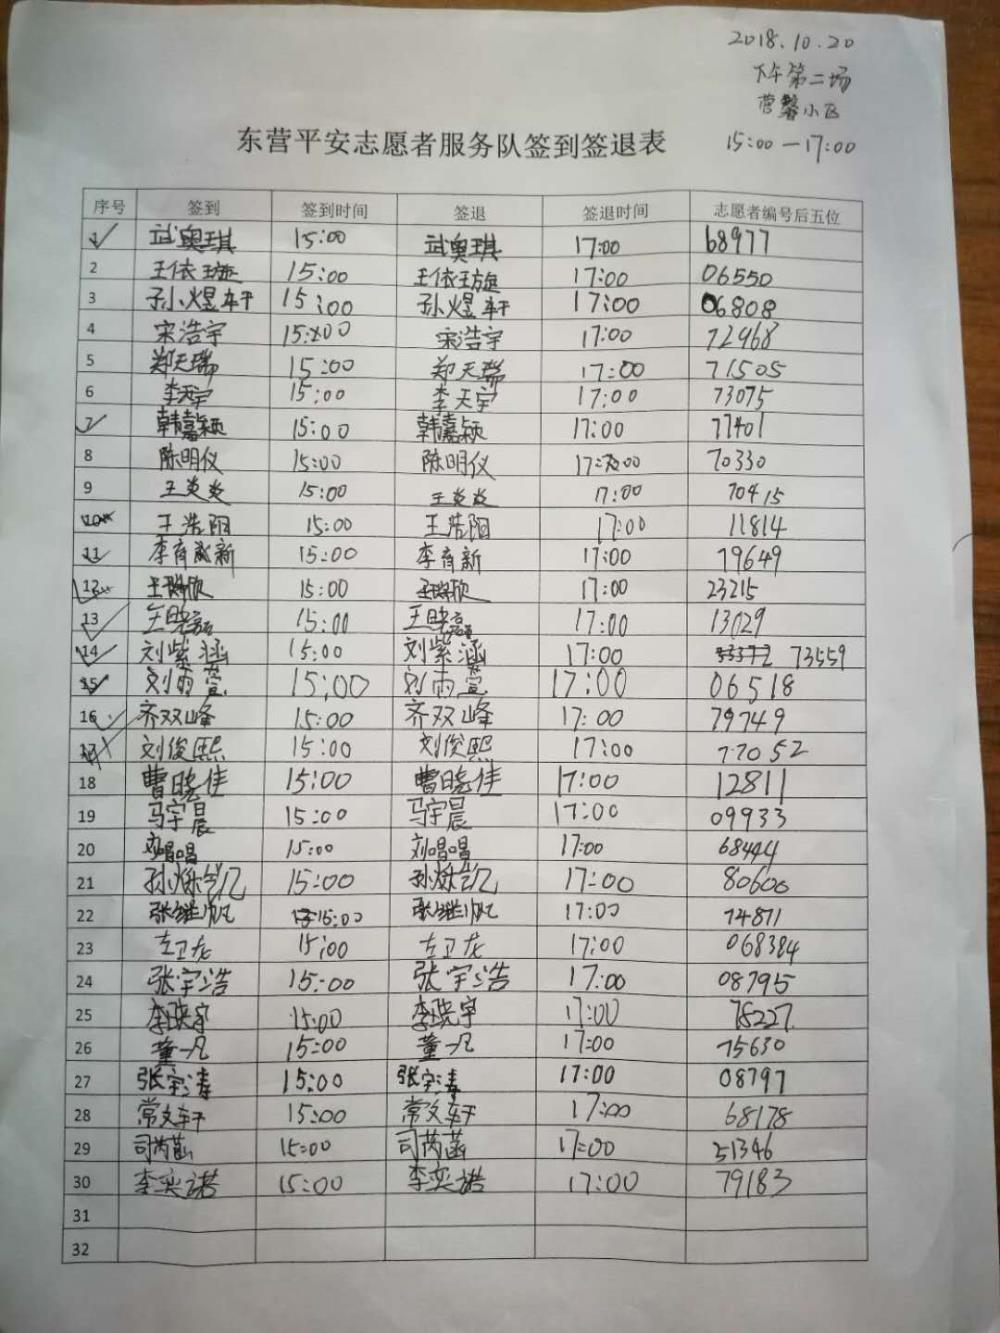 2018.10.20
下午第二场
营馨小区
15:00—17:00
东营平安志愿者服务队签到签退表
序号 签到 签到时间 签退 签退时间 志愿者编号后五位
1 武奥琪 15:00 武奥琪 17:00 68977
2 王依璇 15:00 王依璇 17:00 06550
3 孙小煜轩 15:00 孙煜轩 17:00 06808
4 宋浩宇 15:00 宋浩宇 17:00 72968
5 郑天瑞 15:00 郑天瑞 17:00 71505
6 李天宇 15:00 李天宇 17:00 73075
7 韩嘉颖 15:00 韩嘉颖 17:00 77401
8 陈明仪 15:00 陈明仪 17:00 70330
9 王炎炎 15:00 王炎炎 17:00 70415
10 王浩阳 15:00 王浩阳 17:00 11814
11 李育新 15:00 李育新 17:00 79649
12 15:00 17:00 23215
13 王晓磊 15:00 王晓磊 17:00 13029
14 刘紫涵 15:00 刘紫涵 17:00 73559
15 刘雨萱 15:00 刘雨萱 17:00 06518
16 齐双峰 15:00 齐双峰 17:00 79749
17 刘俊熙 15:00 刘俊熙 17:00 77052
18 曹晓佳 15:00 曹晓佳 17:00 12811
19 马宇晨 15:00 马宇晨 17:00 09933
20 刘唱唱 15:00 刘唱唱 17:00 68444
21 15:00 17:00 80600
22 张继帆 15:00 张继帆 17:00 74871
23 左卫龙 15:00 左卫龙 17:00 068384
24 张宇浩 15:00 张宇浩 17:00 08795
25 李晓宇 15:00 李晓宇 17:00 78227
26 董一凡 15:00 董一凡 17:00 75630
27 张宇涛 15:00 张宇涛 17:00 08797
28 常文轩 15:00 常文轩 17:00 68178
29 司芮菡 15:00 司芮菡 17:00 51346
30 李奕诺 15:00 李奕诺 17:00 79183
31
32